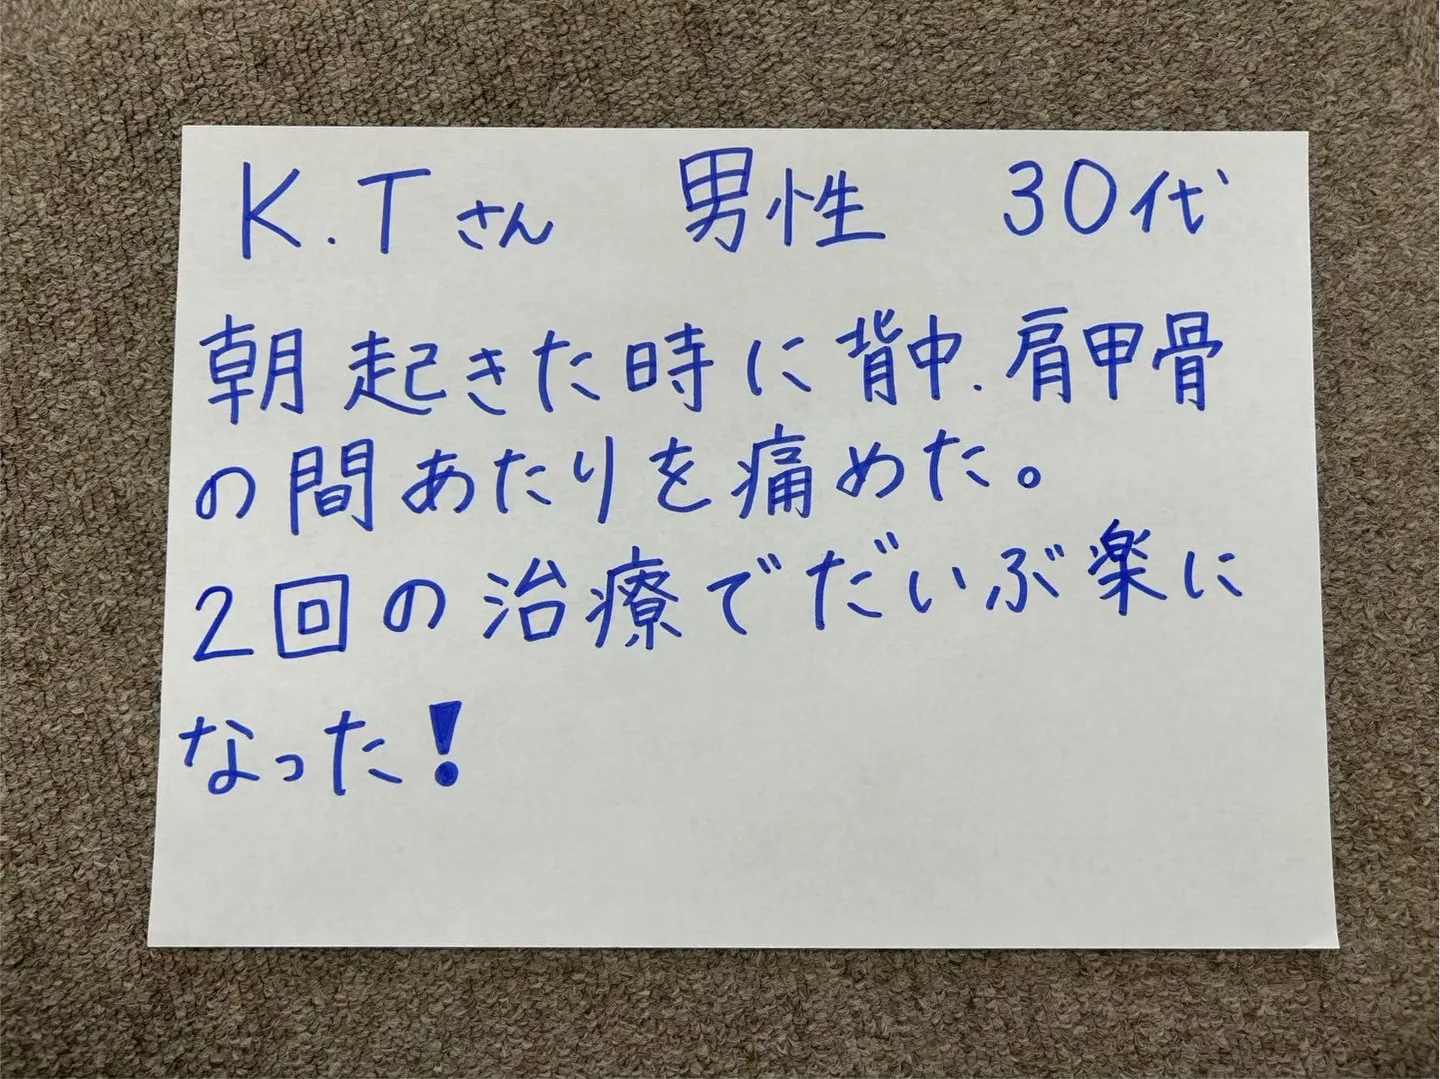 K.Tさん 男性 30代
朝起きた時に背中、肩甲骨
の間あたりを痛めた。
2回の治療でだいぶ楽に
なった!